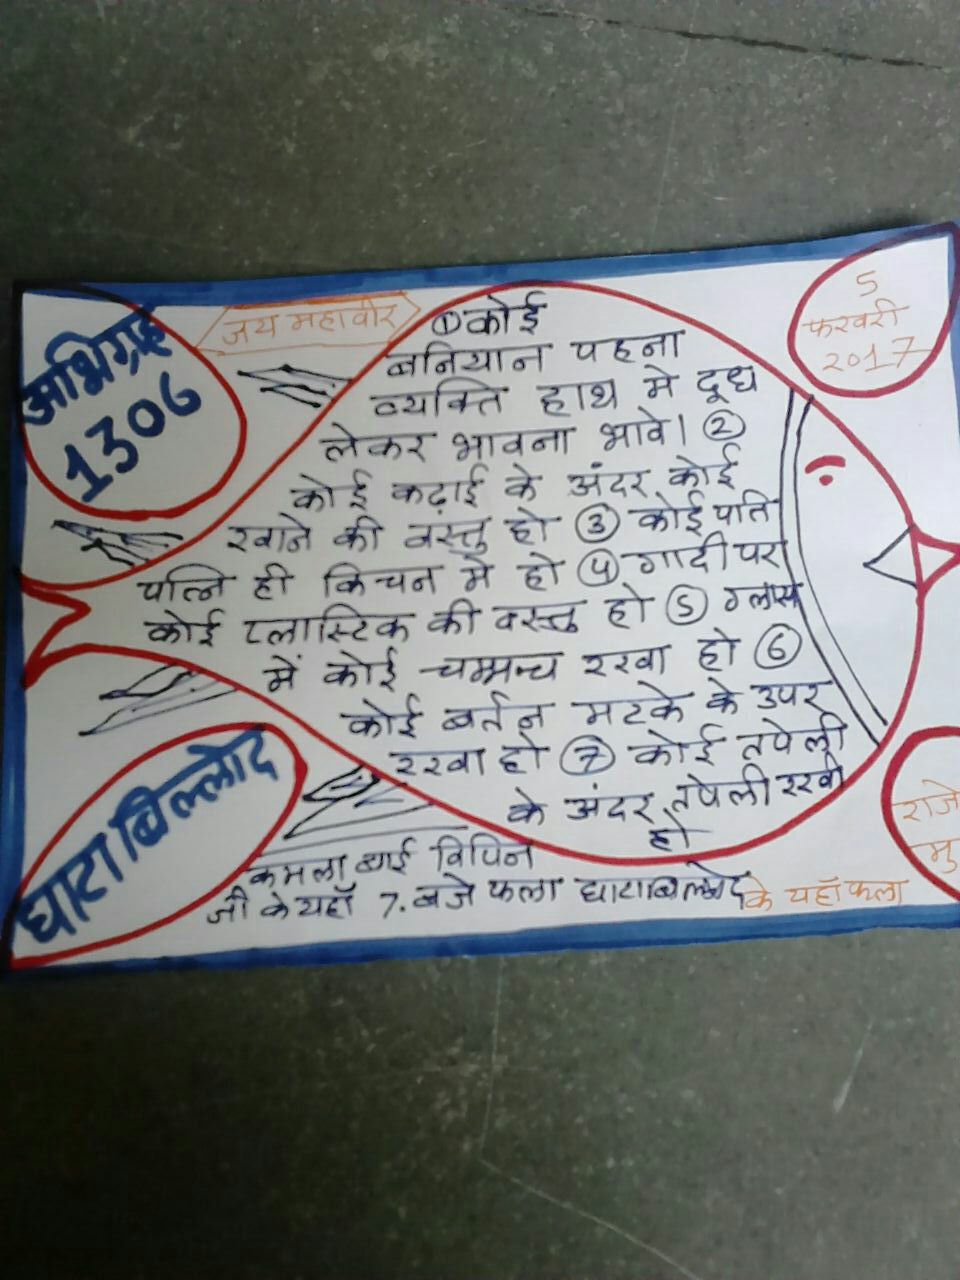 अभिग्रह
1306
जय महावीर
5
फरवरी
2017
① कोई
बनियान पहना
व्यक्ति हाथ मे दूध
लेकर भावना भावे। ②
कोई कढ़ाई के अंदर कोई
खाने की वस्तु हो ③ कोई पति
पत्नि ही किचन मे हो ④ गादी पर
कोई प्लास्टिक की वस्तु हो ⑤ ग्लास
में कोई चम्मच रखा हो ⑥
कोई बर्तन मटके के उपर
रखा हो ⑦ कोई तपेली
के अंदर तपेली रखी
हो
घाटा बिल्लोद
राजे
मु
कमला बाई विपिन
जी के यहाँ 7. बजे फला घाटाबिल्लोद के यहाँ फला